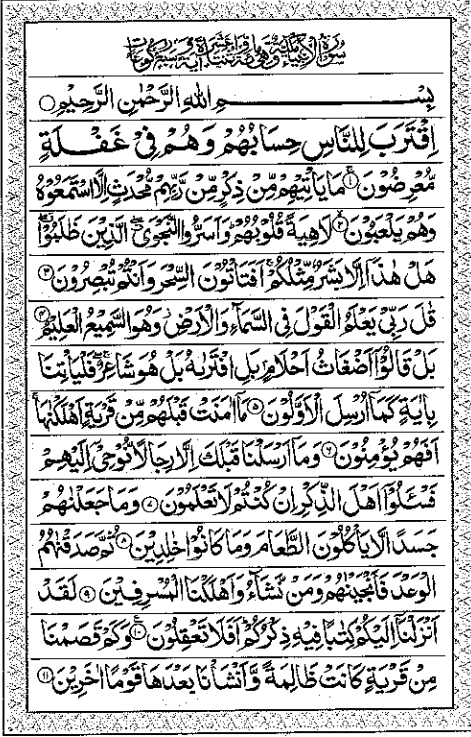 سُوْرَةُ الْاَنْبِيَآءِ مَكِّيَّةٌ وَّهِيَ مِائَةٌ وَّاثْنَتَا عَشْرَةَ اٰيَةً وَّسَبْعُ رُكُوْعَاتٍ
بِسْمِ اللهِ الرَّحْمٰنِ الرَّحِيْمِ ○
اِقْتَرَبَ لِلنَّاسِ حِسَابُهُمْ وَهُمْ فِيْ غَفْلَةٍ
مُّعْرِضُوْنَ ۱ مَا يَاْتِيْهِمْ مِّنْ ذِكْرٍ مِّنْ رَّبِّهِمْ مُّحْدَثٍ اِلَّا اسْتَمَعُوْهُ
وَهُمْ يَلْعَبُوْنَ ۲ لَاهِيَةً قُلُوْبُهُمْ وَاَسَرُّوا النَّجْوَى الَّذِيْنَ ظَلَمُوْا
هَلْ هٰذَآ اِلَّا بَشَرٌ مِّثْلُكُمْ اَفَتَاْتُوْنَ السِّحْرَ وَاَنْتُمْ تُبْصِرُوْنَ ۳
قٰلَ رَبِّيْ يَعْلَمُ الْقَوْلَ فِي السَّمَآءِ وَالْاَرْضِ وَهُوَ السَّمِيْعُ الْعَلِيْمُ ۴
بَلْ قَالُوْٓا اَضْغَاثُ اَحْلَامٍ بَلِ افْتَرٰىهُ بَلْ هُوَ شَاعِرٌ فَلْيَاْتِنَا
بِاٰيَةٍ كَمَآ اُرْسِلَ الْاَوَّلُوْنَ ۵ مَآ اٰمَنَتْ قَبْلَهُمْ مِّنْ قَرْيَةٍ اَهْلَكْنٰهَا
اَفَهُمْ يُؤْمِنُوْنَ ۶ وَمَآ اَرْسَلْنَا قَبْلَكَ اِلَّا رِجَالًا نُّوْحِيْٓ اِلَيْهِمْ
فَسْئَلُوْٓا اَهْلَ الذِّكْرِ اِنْ كُنْتُمْ لَا تَعْلَمُوْنَ ۷ وَمَا جَعَلْنٰهُمْ
جَسَدًا لَّا يَاْكُلُوْنَ الطَّعَامَ وَمَا كَانُوْا خٰلِدِيْنَ ۸ ثُمَّ صَدَقْنٰهُمُ
الْوَعْدَ فَاَنْجَيْنٰهُمْ وَمَنْ نَّشَآءُ وَاَهْلَكْنَا الْمُسْرِفِيْنَ ۹ لَقَدْ
اَنْزَلْنَآ اِلَيْكُمْ كِتٰبًا فِيْهِ ذِكْرُكُمْ اَفَلَا تَعْقِلُوْنَ ۱۰ وَكَمْ قَصَمْنَا
مِنْ قَرْيَةٍ كَانَتْ ظَالِمَةً وَّاَنْشَاْنَا بَعْدَهَا قَوْمًا اٰخَرِيْنَ ۱۱